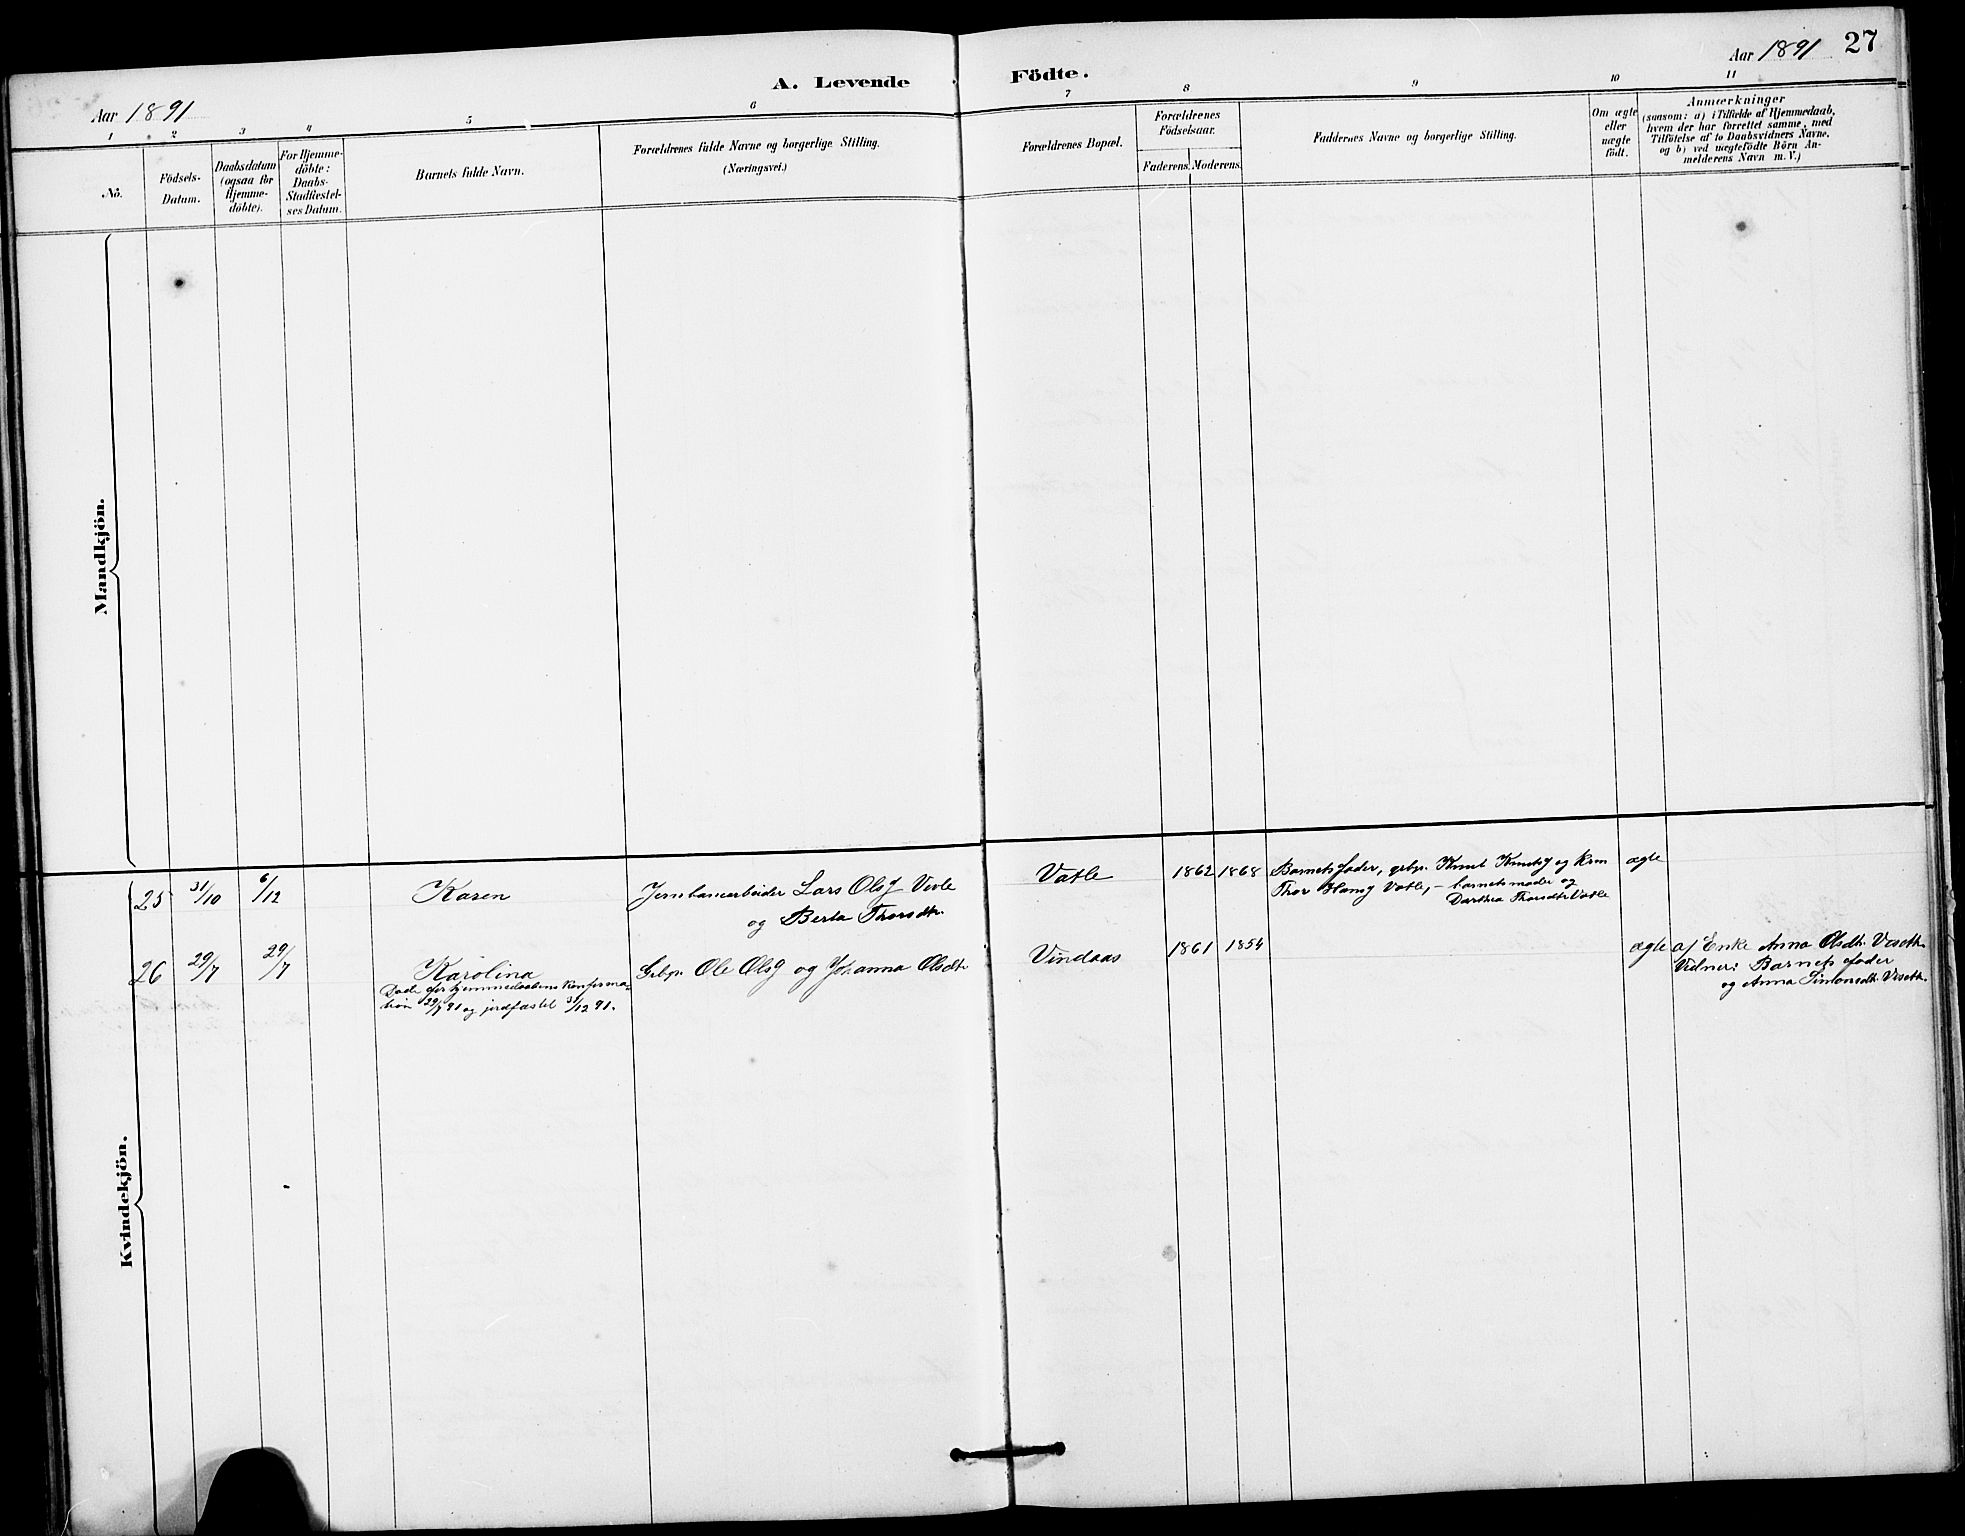 27
Aar 1891
Aar 1891
A. Levende Födte.
1 2 3 4 5 6 7 8 9 10 11
No.
Födsels-
Datum.
Daabsdatum
(ogsaa for
Hjemme-
döbte).
For Hjemme-
döbte:
Daabs-
Stadfæstel-
ses Datum.
Barnets fulde Navn.
Forældrenes fulde Navne og borgerlige Stilling.
(Næringsvei.)
Forældrenes Bopæl.
Forældrenes
Födselsaar.
Faderens. Moderens.
Faddernes Navne og borgerlige Stilling.
Om ægte
eller
uægte
födt.
Anmærkninger
(saasom: a) i Tilfælde af Hjemmedaab,
hvem der har forrettet samme, med
Tilföielse af to Daabsvidners Navne,
og b) ved uægtefödte Börn An-
melderens Navn m. V.)
Mandkjön.
Kvindekjön.
25 31/10 6/12 Karen Jernbanearbeider Lars Ols. Vivle
og Berta Thorsdtr.
Vatle 1862 1868 Barnets fader, grbgr. Knut Knuts. og
Thor Hans. Vatle, – barnets moder og
Darthea Thorsdtr Vatle
ægte
26 29/7 29/7 Karolina
Døde før hjemmedaabens konfirma-
tion 29/7 91 og jordfæstet 31/12 91.
Grbgr. Ole Ols. og Johanna Olsdtr.
Vindaas 1861 1854
ægte af Enke Anna Olsdtr. Veseth.
Vidner: Barnets fader
og Anna Simonsdtr. Veseth.